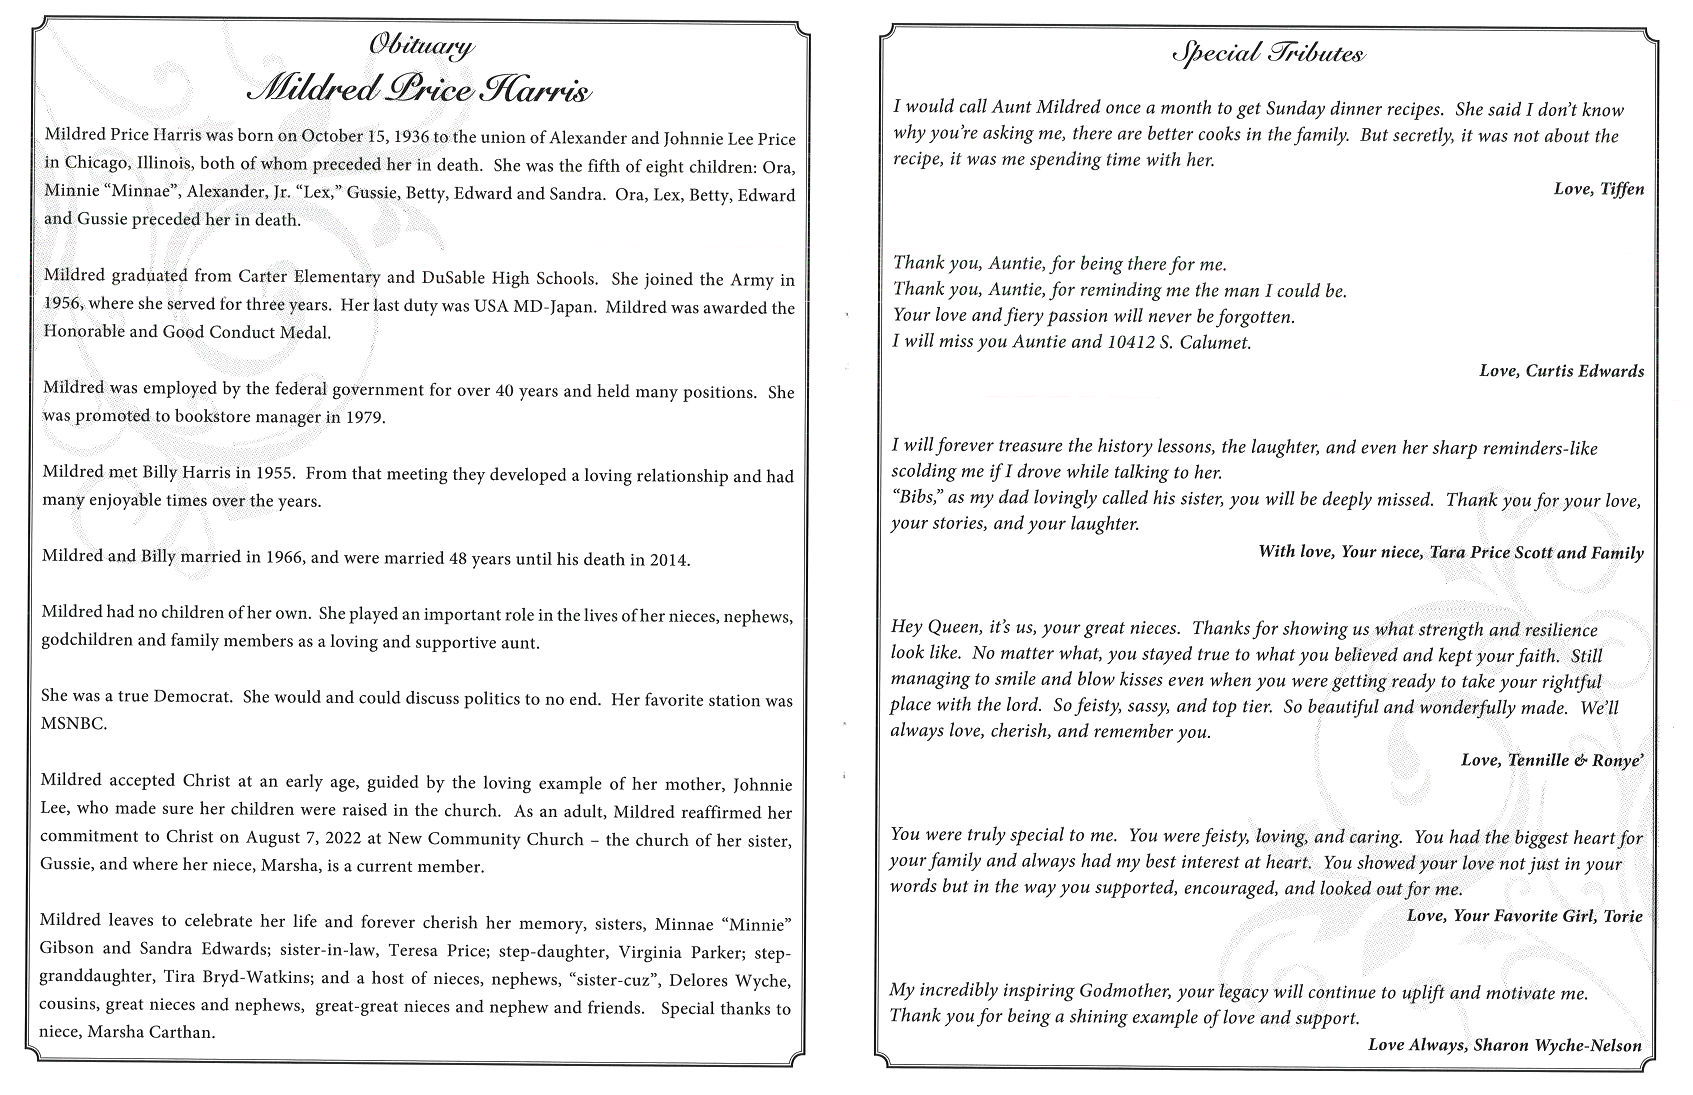 Obituary
Mildred Price Harris
Mildred Price Harris was born on October 15, 1936 to the union of Alexander and Johnnie Lee Price
in Chicago, Illinois, both of whom preceded her in death. She was the fifth of eight children: Ora,
Minnie “Minnae”, Alexander, Jr. “Lex,” Gussie, Betty, Edward and Sandra. Ora, Lex, Betty, Edward
and Gussie preceded her in death.
Mildred graduated from Carter Elementary and DuSable High Schools. She joined the Army in
1956, where she served for three years. Her last duty was USA MD-Japan. Mildred was awarded the
Honorable and Good Conduct Medal.
Mildred was employed by the federal government for over 40 years and held many positions. She
was promoted to bookstore manager in 1979.
Mildred met Billy Harris in 1955. From that meeting they developed a loving relationship and had
many enjoyable times over the years.
Mildred and Billy married in 1966, and were married 48 years until his death in 2014.
Mildred had no children of her own. She played an important role in the lives of her nieces, nephews,
godchildren and family members as a loving and supportive aunt.
She was a true Democrat. She would and could discuss politics to no end. Her favorite station was
MSNBC.
Mildred accepted Christ at an early age, guided by the loving example of her mother, Johnnie
Lee, who made sure her children were raised in the church. As an adult, Mildred reaffirmed her
commitment to Christ on August 7, 2022 at New Community Church – the church of her sister,
Gussie, and where her niece, Marsha, is a current member.
Mildred leaves to celebrate her life and forever cherish her memory, sisters, Minnae “Minnie”
Gibson and Sandra Edwards; sister-in-law, Teresa Price; step-daughter, Virginia Parker; step-
granddaughter, Tira Bryd-Watkins; and a host of nieces, nephews, “sister-cuz”, Delores Wyche,
cousins, great nieces and nephews, great-great nieces and nephew and friends. Special thanks to
niece, Marsha Carthan.
Special Tributes
I would call Aunt Mildred once a month to get Sunday dinner recipes. She said I don’t know
why you’re asking me, there are better cooks in the family. But secretly, it was not about the
recipe, it was me spending time with her.
Love, Tiffen
Thank you, Auntie, for being there for me.
Thank you, Auntie, for reminding me the man I could be.
Your love and fiery passion will never be forgotten.
I will miss you Auntie and 10412 S. Calumet.
Love, Curtis Edwards
I will forever treasure the history lessons, the laughter, and even her sharp reminders-like
scolding me if I drove while talking to her.
“Bibs,” as my dad lovingly called his sister, you will be deeply missed. Thank you for your love,
your stories, and your laughter.
With love, Your niece, Tara Price Scott and Family
Hey Queen, it’s us, your great nieces. Thanks for showing us what strength and resilience
look like. No matter what, you stayed true to what you believed and kept your faith. Still
managing to smile and blow kisses even when you were getting ready to take your rightful
place with the lord. So feisty, sassy, and top tier. So beautiful and wonderfully made. We’ll
always love, cherish, and remember you.
Love, Tennille & Ronye’
You were truly special to me. You were feisty, loving, and caring. You had the biggest heart for
your family and always had my best interest at heart. You showed your love not just in your
words but in the way you supported, encouraged, and looked out for me.
Love, Your Favorite Girl, Torie
My incredibly inspiring Godmother, your legacy will continue to uplift and motivate me.
Thank you for being a shining example of love and support.
Love Always, Sharon Wyche-Nelson